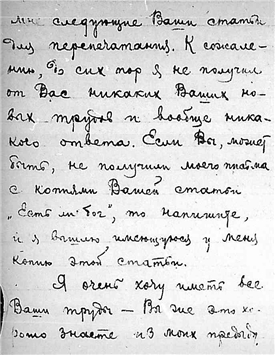 мне следующие Ваши статьи
для перепечатания. К сожале-
нию, до сих пор я не получил
от Вас никаких Ваших но-
вых трудов и вообще ника-
кого ответа. Если Вы, может
быть, не получили моего письма
с копиями Вашей статьи
„Есть ли бог", то напишите,
и я вышлю имеющуюся у меня
копию этой статьи.
Я очень хочу иметь все
Ваши труды — Вы же это хо-
рошо знаете из моих предыд